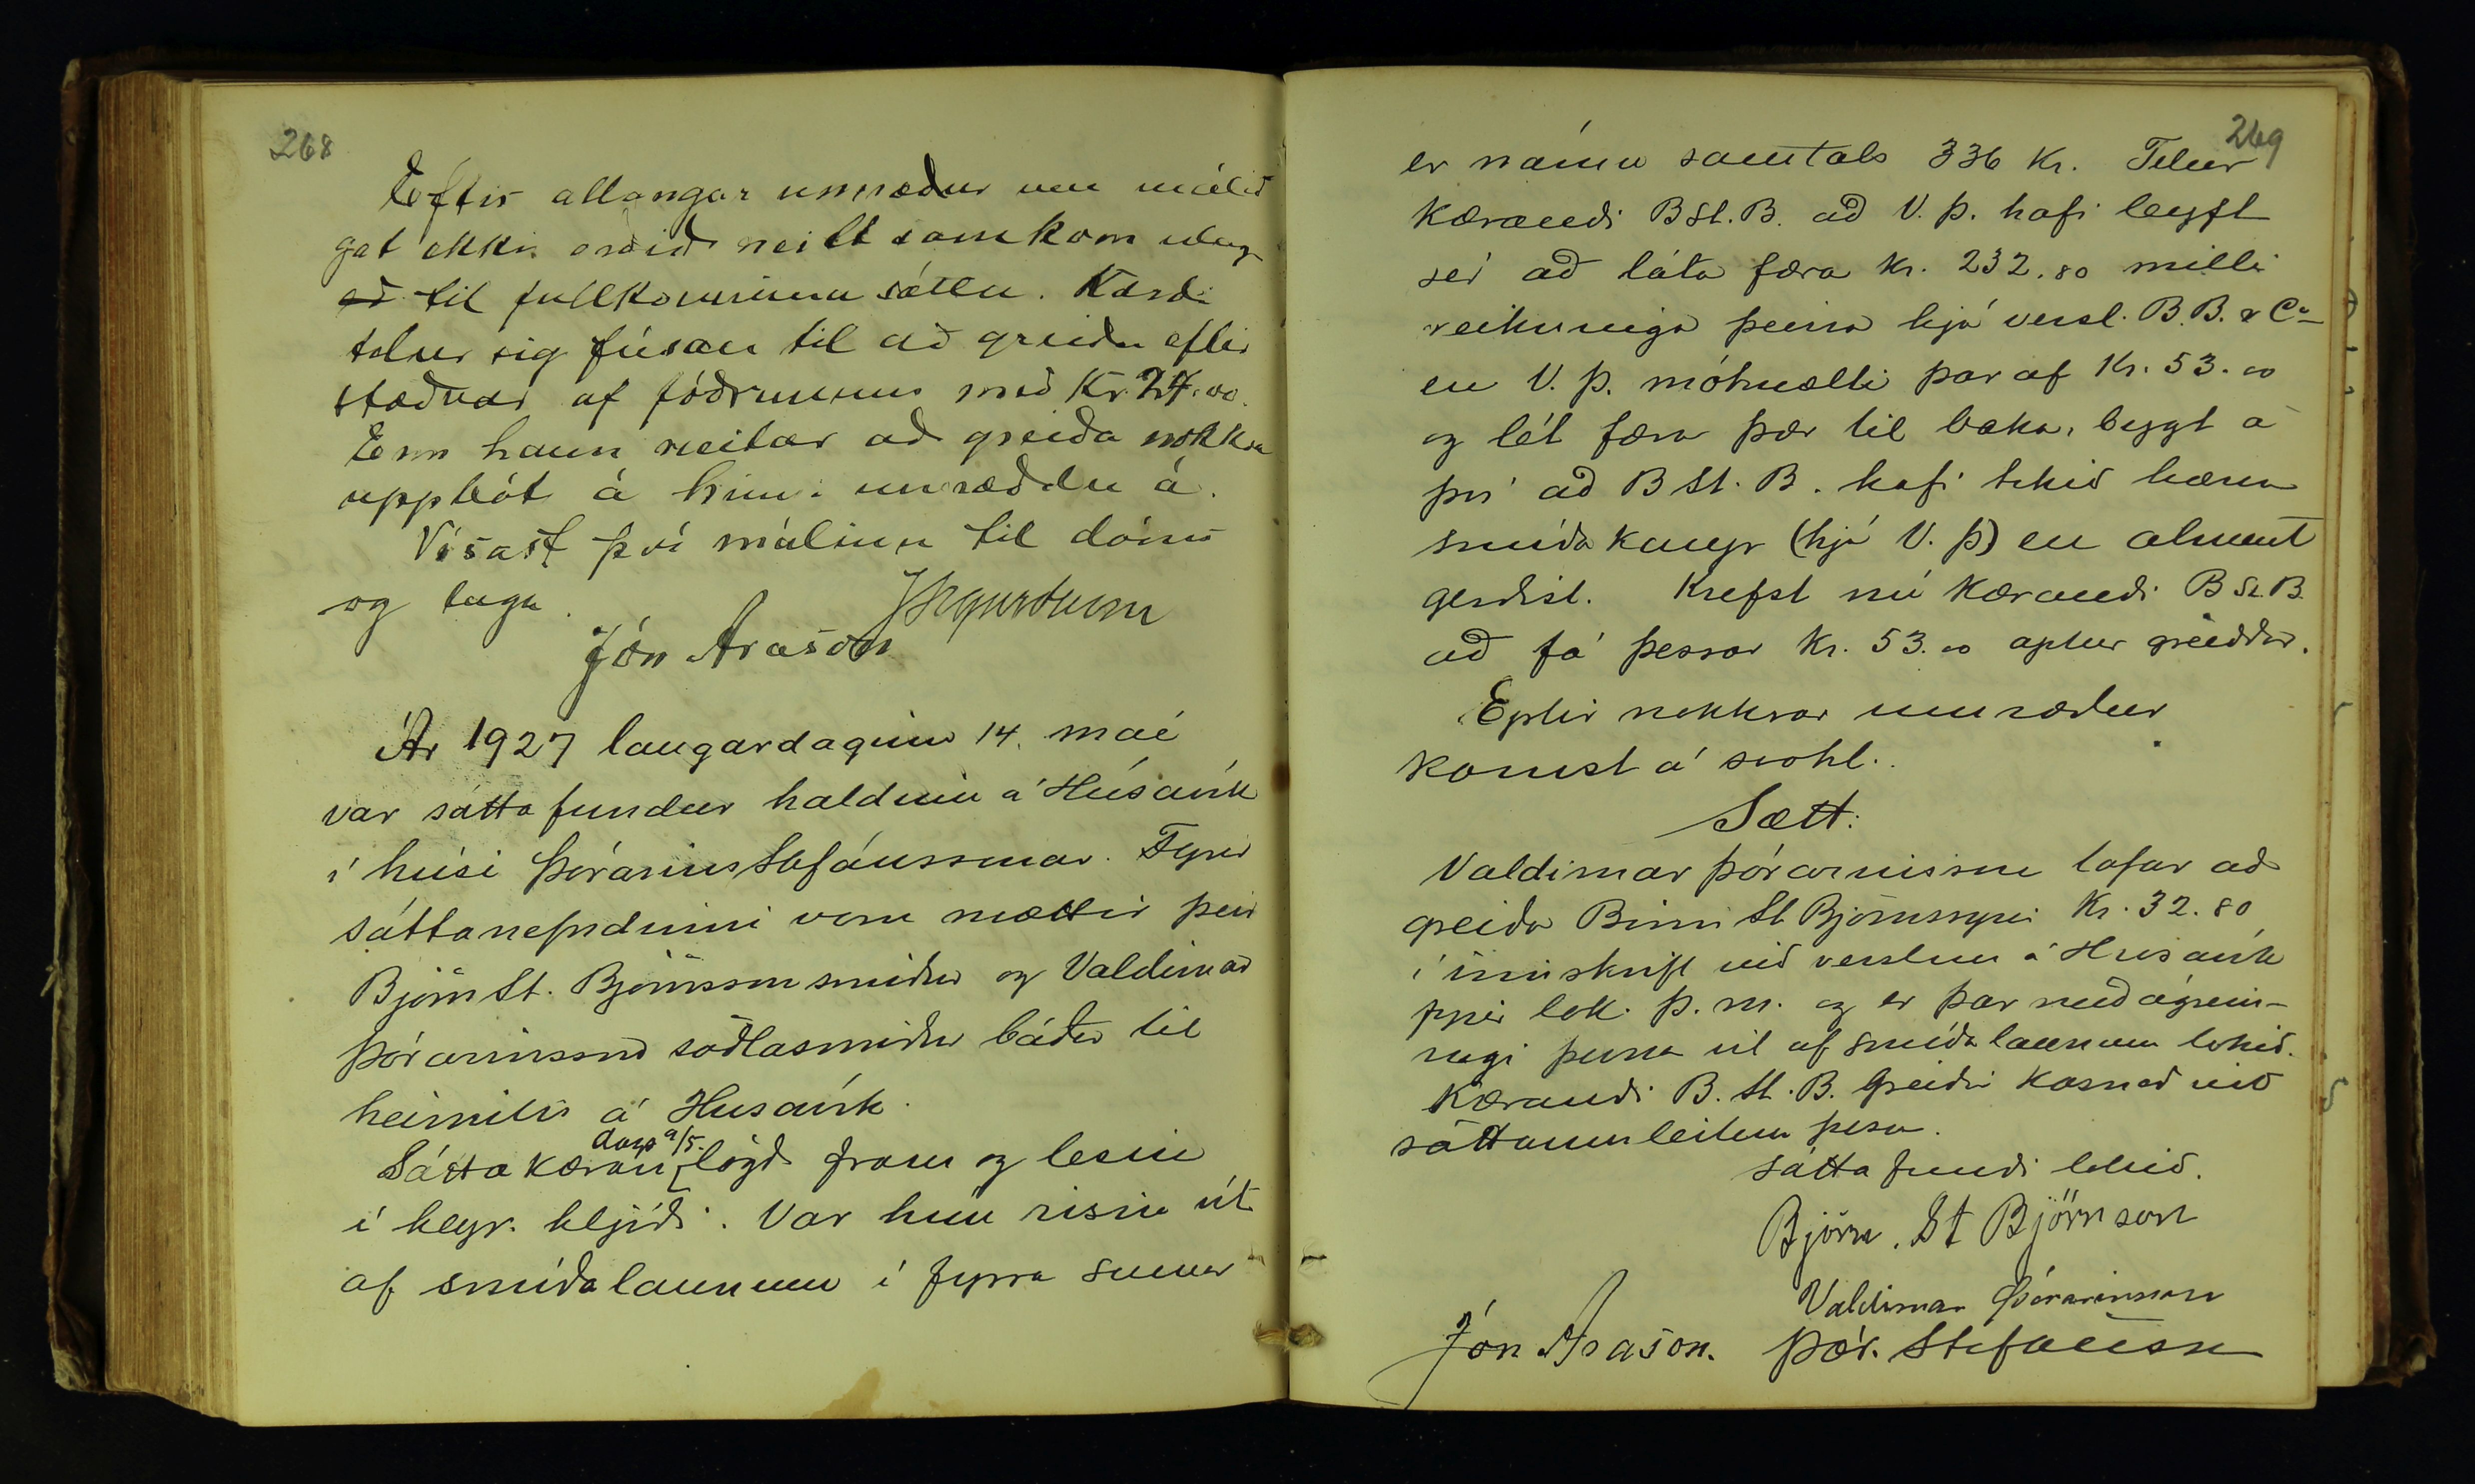 268
Eftir allangar umræður um málið
gat ekki orðið neitt samkomulag
að til fullkominna sátta. Kærði
telur sig fúsan til að greiða eftir
stæðvar af fóðrunum með Kr 24.00.
Enn hann neitar að greiða nokkra
uppbót á hinni umræddu á.
Vísast því málinu til dóms
og laga.
Jón Arason
Ár 1927 laugardaginn 14. maí
var sátta fundur haldinn á Húsavík
í húsi Þórarins Stefánssonar. Fyrir
sáttanefndinni voru mættir þeir
Björn St. Björnsson smiður og Valdimar
Þórarinsson söðlasmiður báðir til
heimilis á Husavík.
Sátta kæran dags 9/5. lögð fram og lesin
í heyr. hljóði. Var hún risin út
af smíðalaunum í fyrra sumar
269
er námu samtals 336 Kr. Telur
Kærandi B St. B. að V. Þ. hafi leyft
sér að láta færa Kr. 232.80 milli
reikninga þeirra hjá versl. B.B. & Co
en V. Þ. móhmælti þar af Kr. 53.00
og lét færa þær til baka, byggt á
því að B St. B. hafi tekið hærra
smíðakaup (hjá V. Þ) en alment
gerðist. Krefst nú Kærandi B St. B.
að fá þessar Kr. 53.00 aptur greiddar.
Eptir nokkrar umræður
komst á svohl.
Sætt:
Valdimar Þórarinsson lofar að
greiða Birni St Björnssyni Kr. 32.80
í innskrift við verslun á Husavík
fyrir lok þ. m. og er þar með ágrein-
ingi þeirra út af smíðalaunum lokið.
Kærandi B. St. B. greiðir kosnað við
sáttaumleitun þessa.
Sátta fundi lokið.
Björn. St Björnson
Valdimar Þórarinsson
Jón Arason. Þór. Stefánsson